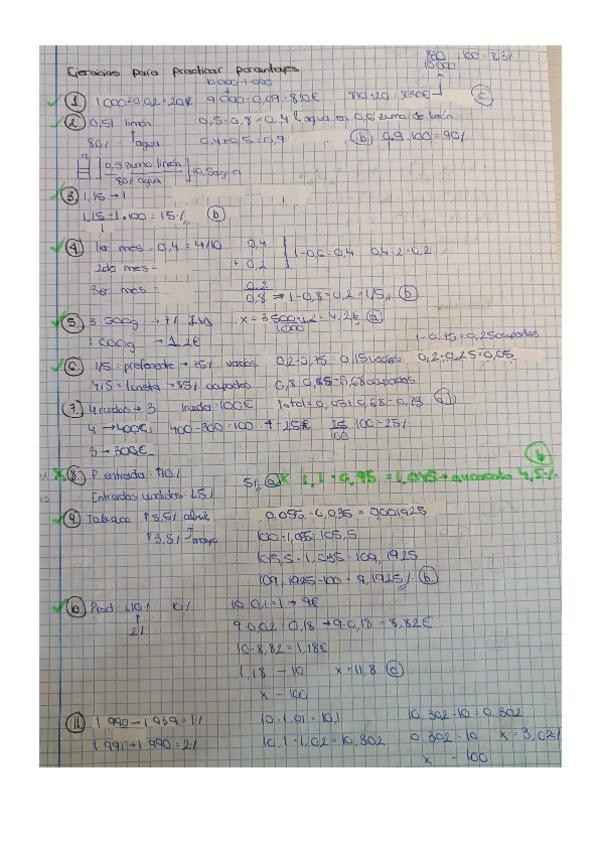 Ejercicios para practicar porcentajes
830 · 100 = 8,3%
10000
10000-1000
① 1000·0,02=20€ 9000·0,09=810€ 810+20=830€ ⓒ
② 0,5l limón 0,5·0,8=0,4 l agua en 0,5 zumo de limón
80% agua 0,4+0,5=0,9 ⓑ 0,9·100=90%
0,5 zumo limón
80% agua
③ 1,15→1
1,15-1·100=15% ⓑ
1
④ 1er mes=0,4=4/10 0,4 1-0,6=0,4 0,4:2=0,2
2do mes= + 0,2
3er mes= 0,2
0,8 → 1-0,8=0,2=1/5 ⓑ
⑤ 3500g x=3500·1,2=4,2€
1000g →1,2€ 1000
1-0,75=0,25 ocupados
⑥ 1/5=preferente→75% vacíos 0,2·0,75=0,15 vacíos 0,2·0,25=0,05
4/5=turista→85% ocupados 0,8·0,85=0,68 ocupados
Total=0,05+0,68=0,73
⑦ 4 ruedas→3 1 rueda=100€
4→400€ 400-300=100 :4=25€ 25 ·100=25%
100
3→300€
⑧ P entrada: ↑10% 5% ⓐ x 1,1·0,95=1,045→aumento 4,5% ⓑ
Entradas vendidas: ↓5%
⑨ Tabaco ↑5,5% abril 0,055·0,035=0,001925
↑3,5% mayo 100·1,055=105,5
105,5·1,035=109,1925
109,1925-100=9,1925% ⓑ
⑩ Prod ↓10% 10% 10·0,1=1→9€
2% 9·0,02=0,18→9-0,18=8,82€
10-8,82=1,18€
1,18 - 10 x=11,8 ⓒ
x - 100
⑪ 1990→1989=1% 10·1,01=10,1 10,302-10=0,302
1991→1990=2% 10,1·1,02=10,302 0,302-10 x=3,02%
x - 100